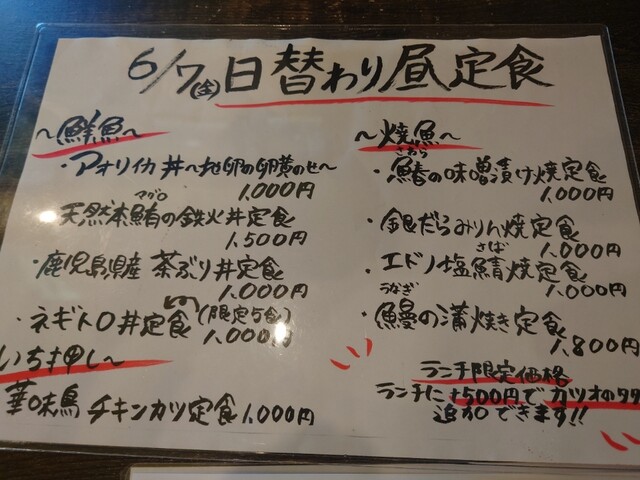 6/7(金)日替わり昼定食
~鮮魚~
・アオリイカ丼~地卵の卵黄のせ~
1,000円
マグロ
天然本鮪の鉄火丼定食
1,500円
・鹿児島県産 茶ぶり丼定食
1,000円
・ネギトロ丼定食(限定5食)
1,000円
いち押し~
華味鳥 チキンカツ定食 1,000円
~焼魚~
さわら
・鰆の味噌漬け焼定食
1,000円
・銀だらみりん焼定食
さば 1,000円
・エドノ塩鯖焼定食
うなぎ 1,000円
・鰻の蒲焼き定食
1,800円
ランチ限定価格
ランチに+500円でカツオのタタ
追加できます!!